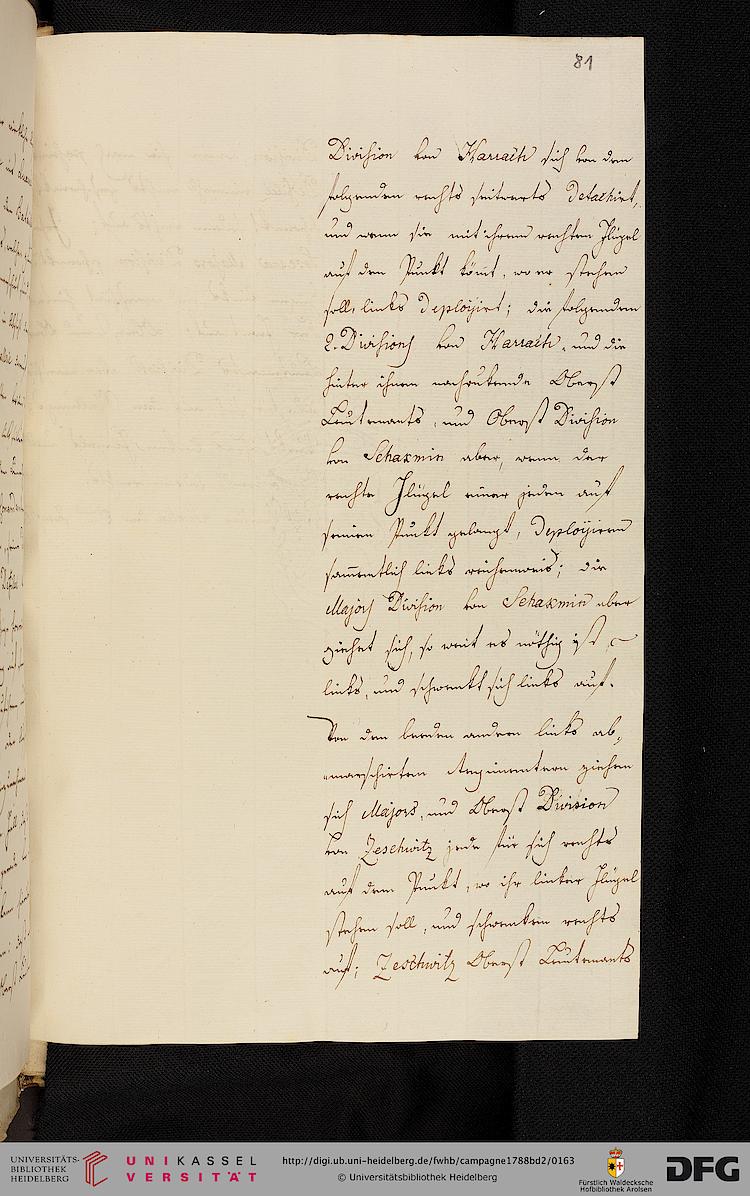 81
Division von Harrach sich von den
folgenden rechts seitwerts detachirt,
und wenn sie mit ihrem rechten Flügel
auf den Punkt kömt, wo er stehen
soll, links deployirt; die folgenden
2. Divisions von Harrach, und die
hinter ihnen nachrukende Oberst
Leutenants, und Oberst Division
von Schaxmin aber, wenn der
rechte Flügel einer jeden auf
seinen Punkt gelangt, deployiren
sam̄entlich links reihenweis; die
Majors Division von Schaxmin aber
ziehet sich, so weit es nöthig ist
links, und schwenkt sich links auf.
Von den beeden andern links ab-
marschirten Regimentern ziehen
sich Majors, und Oberst Division
von Zeschwitz jede für sich rechts
auf den Punkt, wo ihr linker Flügel
stehen soll, und schwenken rechts
auf; Zeschwitz Oberst Leutenants
UNIVERSITÄTS-
BIBLIOTHEK
HEIDELBERG
UNIKASSEL
VERSITÄT
http://digi.ub.uni-heidelberg.de/fwhb/campagne1788bd2/0163
© Universitätsbibliothek Heidelberg
Fürstlich Waldecksche
Hofbibliothek Arolsen
DFG